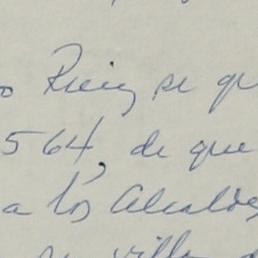 o Ruiz se qu
564, de que
a los Alcaldes
su villa d